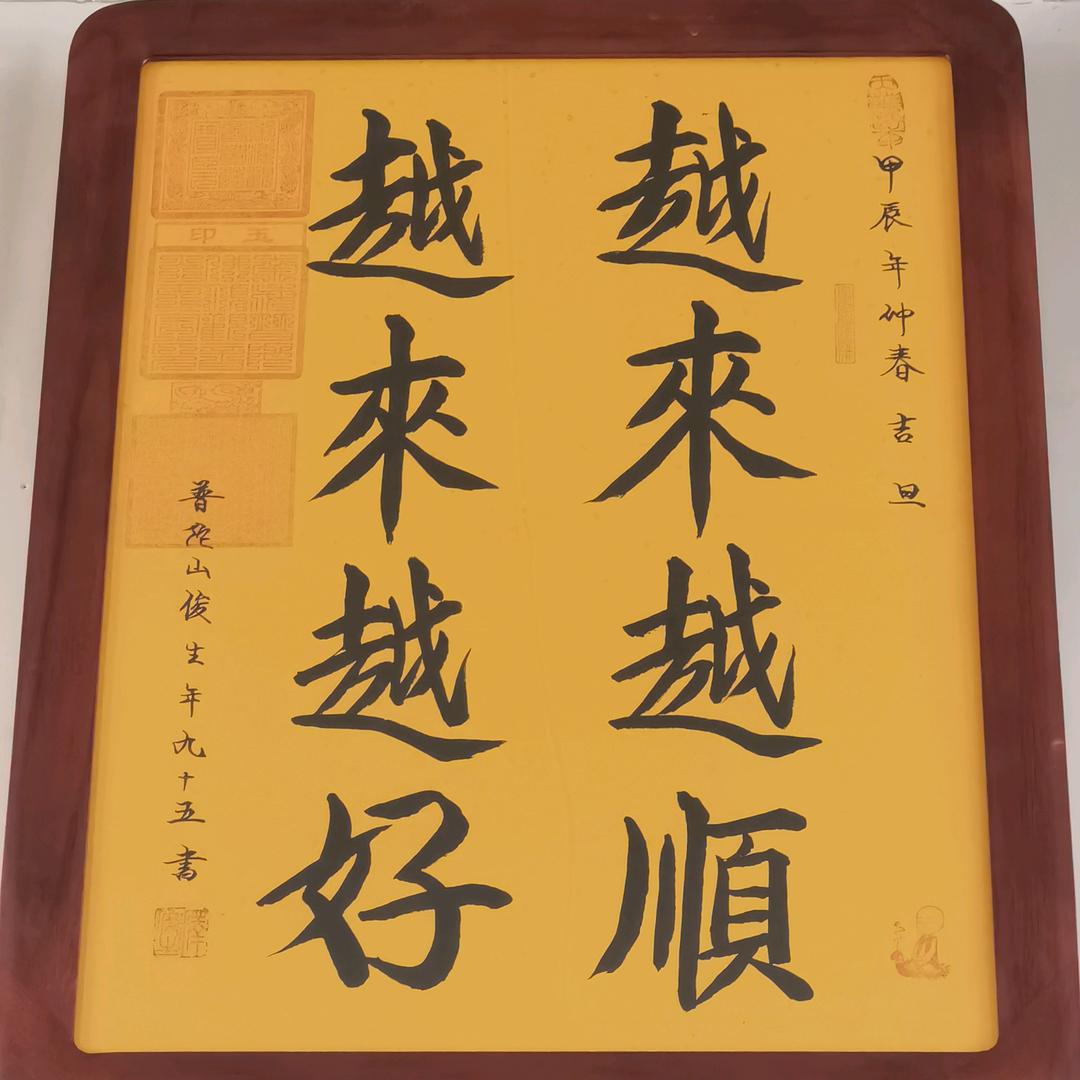 甲辰年仲春吉旦
越來越順
越來越好
普陀山俊生年九十五書
玉印